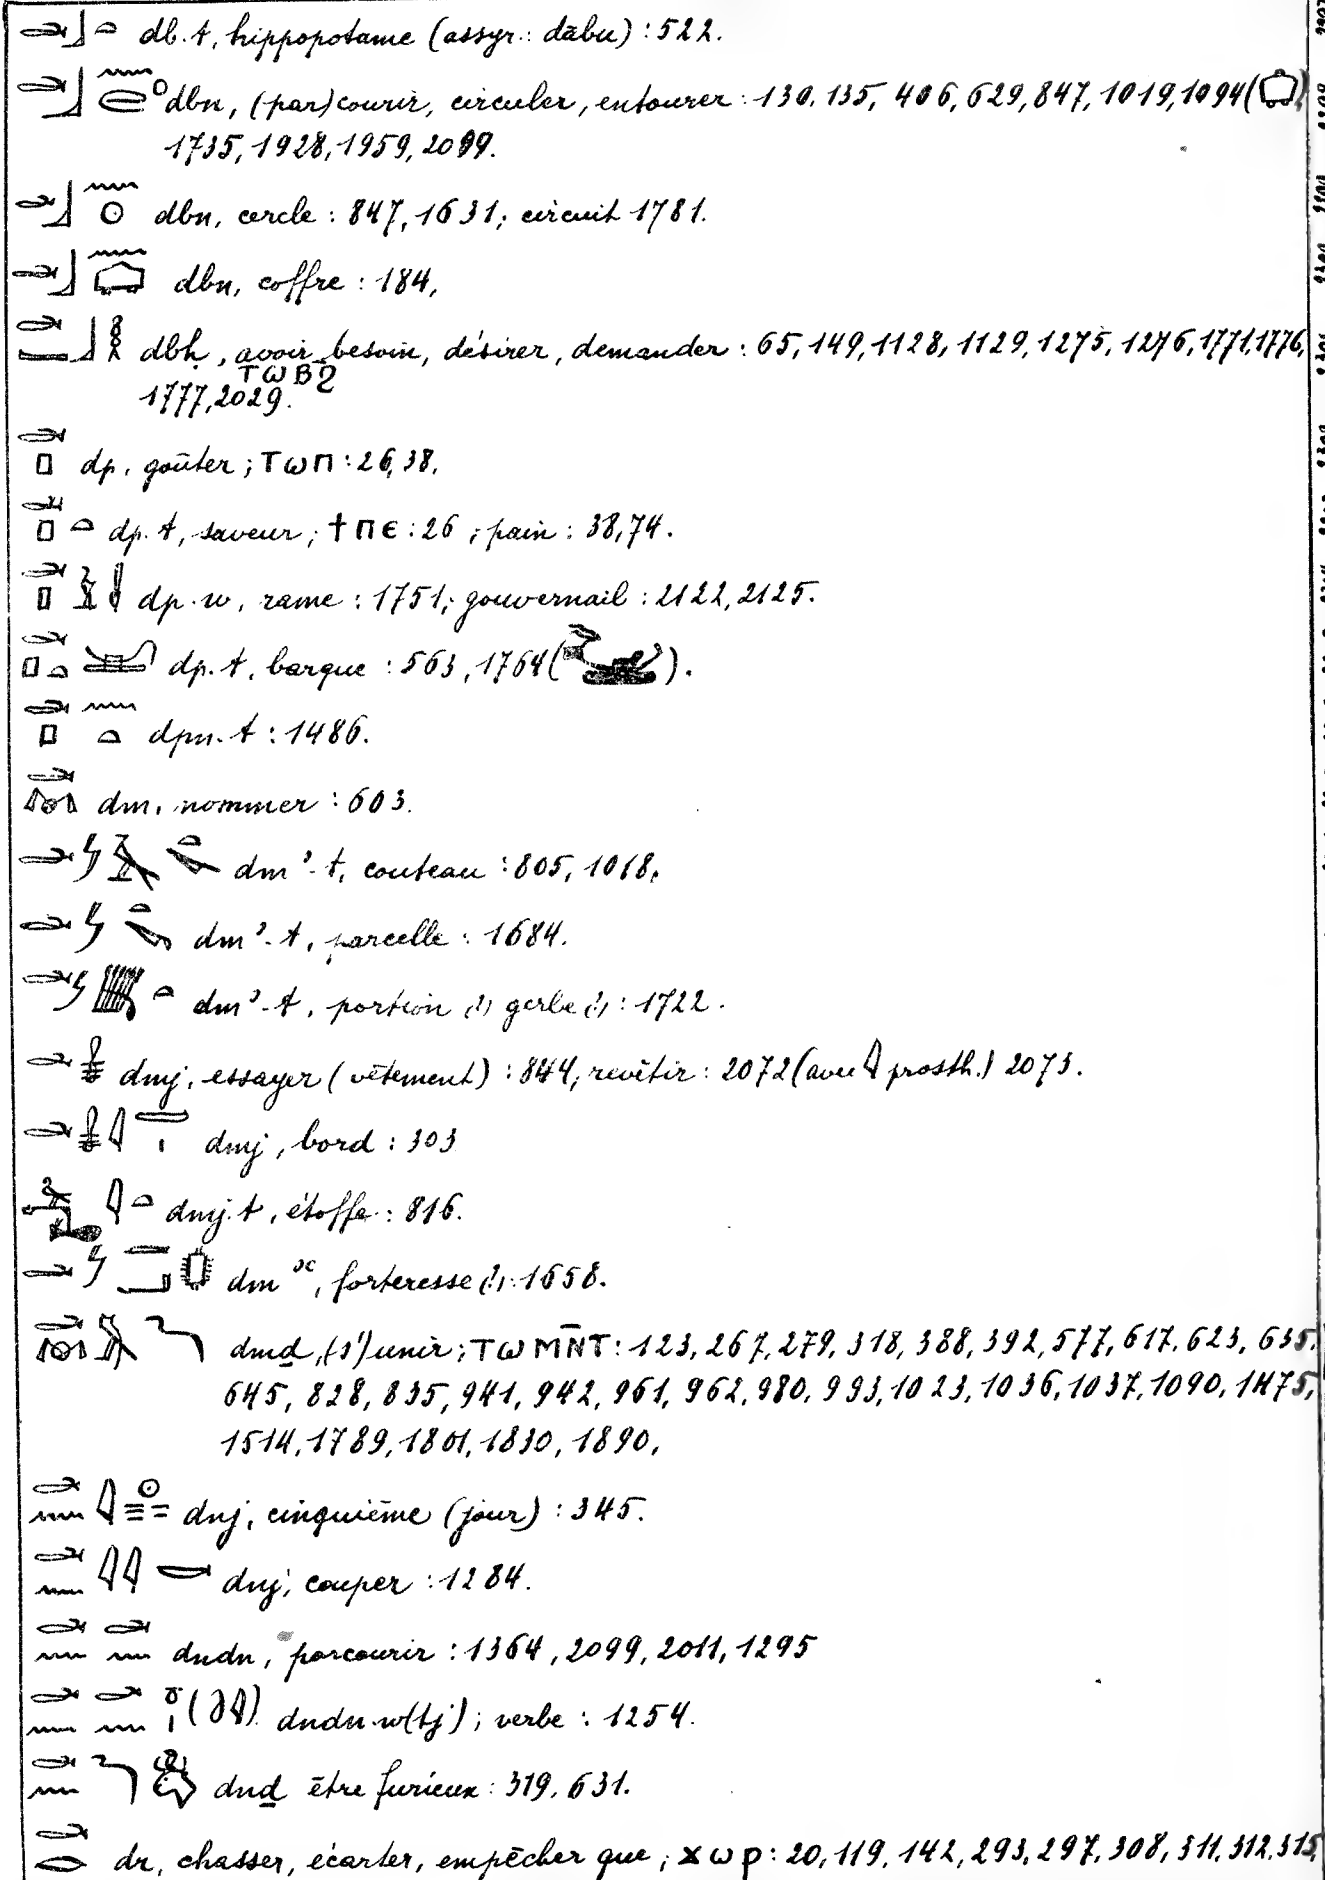 db.t, hippopotame (assyr.: dābu) : 522.
dbn, (par)courir, circuler, entourer : 130, 135, 406, 629, 847, 1019, 1094( )
1735, 1928, 1959, 2099.
dbn, cercle : 847, 1631; circuit 1781.
dbn, coffre : 184,
dbḥ, avoir besoin, désirer, demander : 65, 149, 1128, 1129, 1275, 1276, 1771, 1776,
ⲧⲱⲃϩ
1777, 2029.
dp, goûter ; ⲧⲱⲡ : 26, 38,
dp.t, saveur ; ϯⲡⲉ : 26 ; pain : 38, 74.
dp.w, rame : 1751; gouvernail : 2122, 2125.
dp.t, barque : 563, 1764( ).
dpn.t : 1486.
dm, nommer : 603.
dmꜣ.t, couteau : 805, 1018,
dmꜣ.t, parcelle : 1684.
dmꜣ.t, portion (?) gerbe (?) : 1722.
dmj, essayer (vêtement) : 844; revêtir : 2072 (avec 𓇋 prosth.) 2073.
dmj, bord : 303
dmj.t, étoffe : 816.
dmꜣꜥ, forteresse (?) : 1658.
dmḏ, (s')unir ; ⲧⲱⲙⲛ̄ⲧ : 123, 267, 279, 318, 388, 392, 577, 617, 623, 635,
645, 828, 835, 941, 942, 961, 962, 980, 993, 1023, 1036, 1037, 1090, 1475,
1514, 1789, 1801, 1830, 1890,
dnj, cinquième (jour) : 345.
dnj, couper : 1284.
dndn, parcourir : 1364, 2099, 2011, 1295
dndn.w(tj) ; verbe : 1254.
dnḏ être furieux : 319, 631.
dr, chasser, écarter, empêcher que ; ϫⲱⲣ : 20, 119, 142, 293, 297, 308, 311, 312, 315,